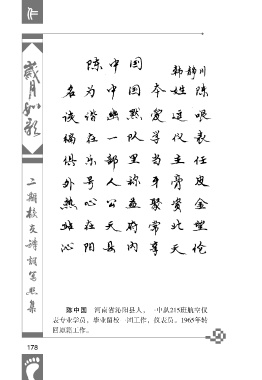 作
岁月如歌
二期校友诗词笔照集
陈中国
韩静川
名为中国本姓陈
诙谐幽默爱逗哏
编在一队学仪表
俱乐部里当主任
外号人称牛膏皮
热心公益聚资金
家在天府常北望
沁阳县内享天伦
陈中国 河南省沁阳县人，一中队215班航空仪
表专业学员，毕业留校一团工作，仪表员。1965年转
回原籍工作。
178